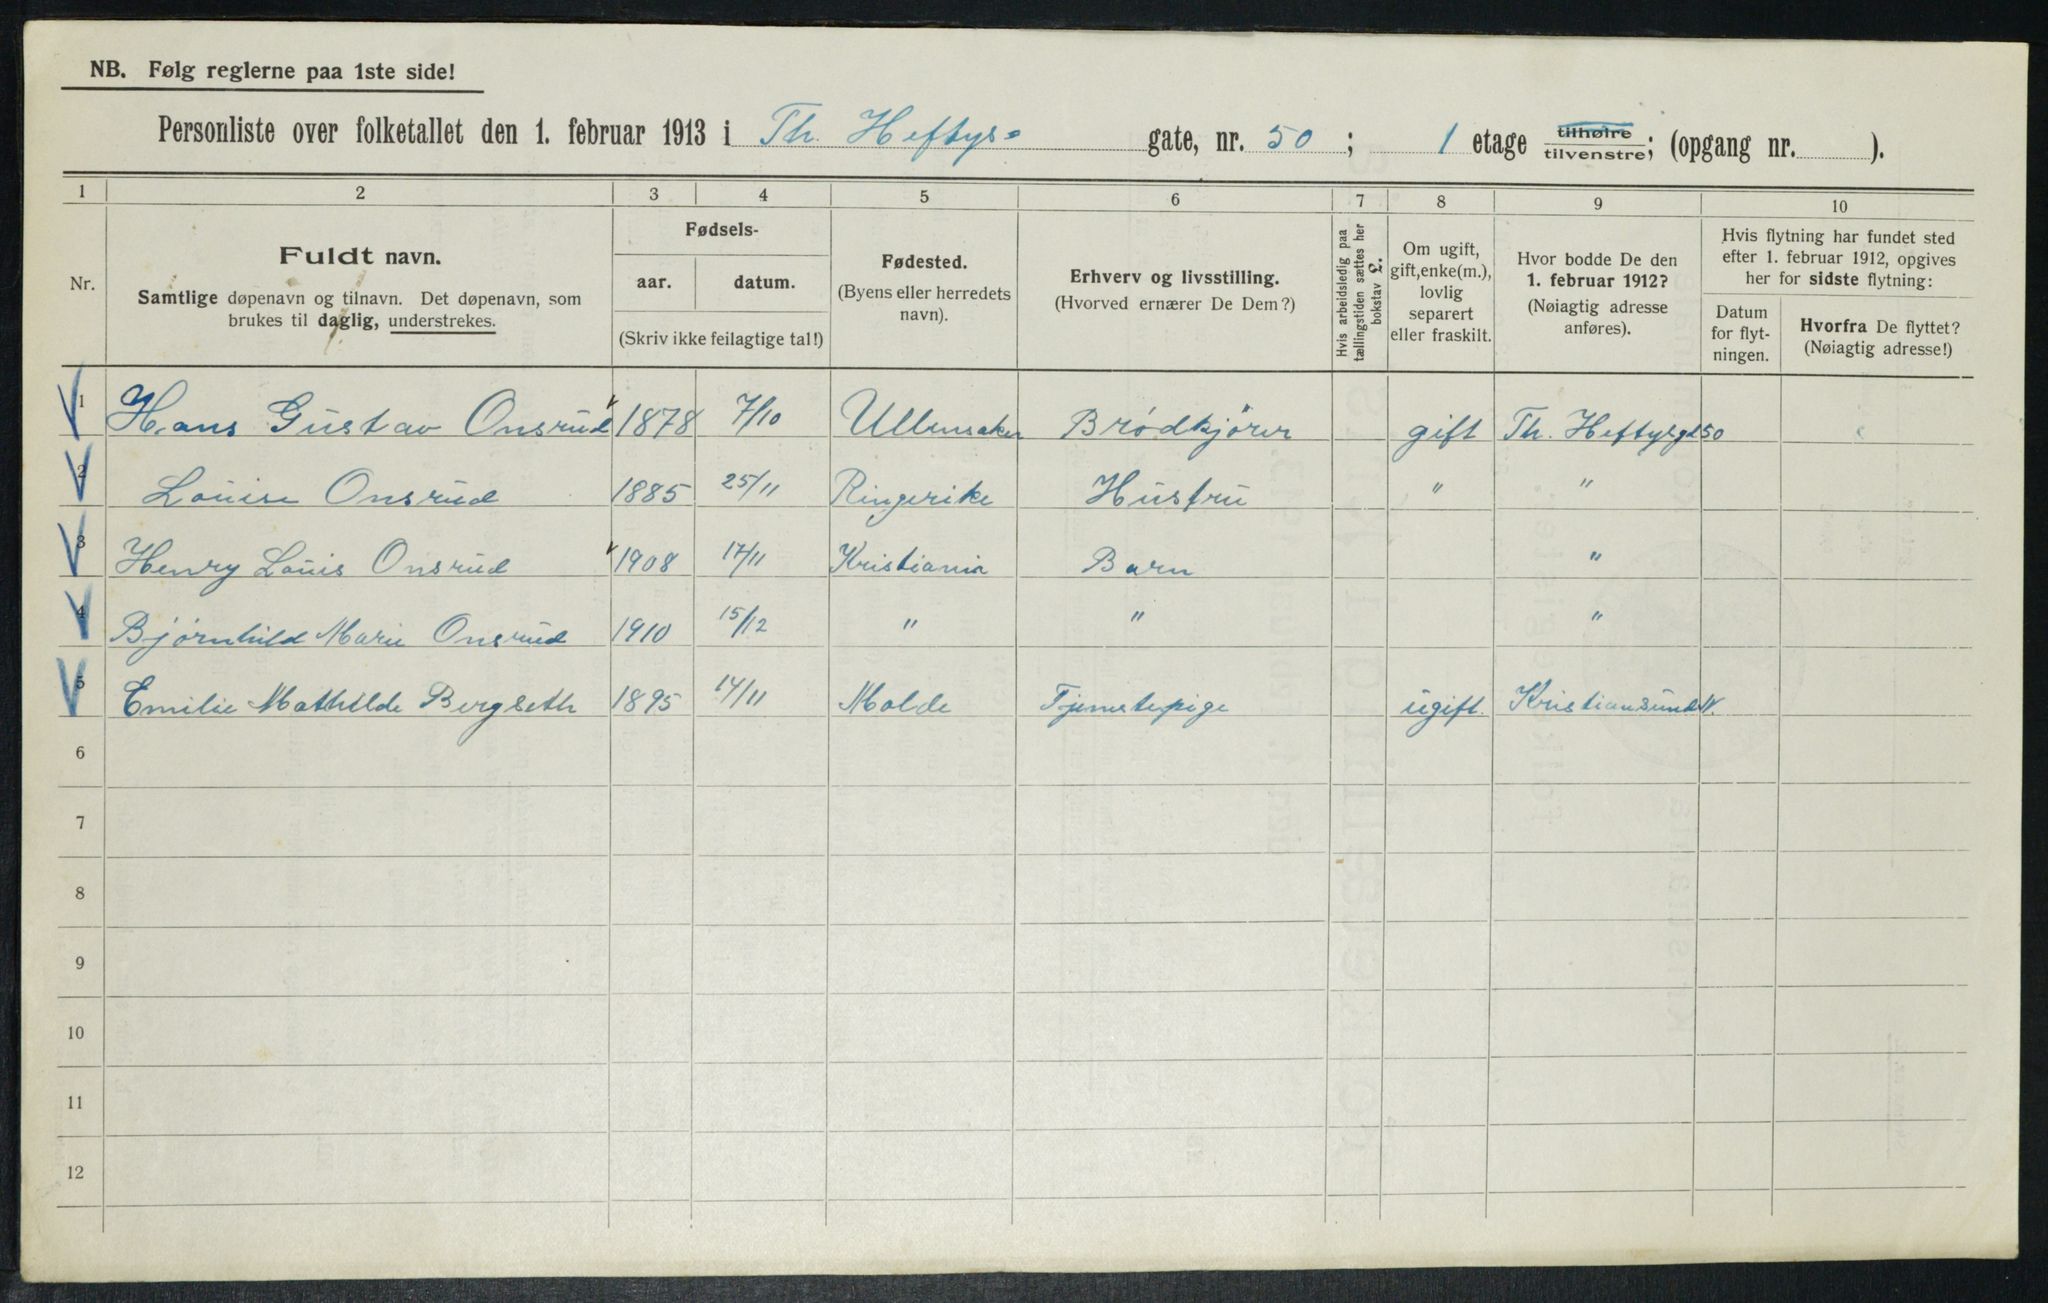 NB. Følg reglerne paa 1ste side!
Personliste over folketallet den 1. februar 1913 i Th. Heftys= gate, nr. 50; 1 etage tilhøire tilvenstre; (opgang nr. ).
1 2 3 4 5 6 7 8 9 10
Nr.
Fuldt navn.
Samtlige døpenavn og tilnavn. Det døpenavn, som
brukes til daglig, understrekes.
Fødsels-
aar. datum.
(Skriv ikke feilagtige tal!)
Fødested.
(Byens eller herredets
navn).
Erhverv og livsstilling.
(Hvorved ernærer De Dem?)
Hvis arbeidsledig paa
tællingstiden sættes her
bokstav L.
Om ugift,
gift, enke(m.),
lovlig
separert
eller fraskilt.
Hvor bodde De den
1. februar 1912?
(Nøiagtig adresse
anføres).
Hvis flytning har fundet sted
efter 1. februar 1912, opgives
her for sidste flytning:
Datum
for flyt-
ningen.
Hvorfra De flyttet?
(Nøiagtig adresse!)
1 Hans Gustav Onsrud 1878 7/10 Ullensaker Brødkjører gift Th. Heftysgt 50
2 Louise Onsrud 1885 25/11 Ringerike Hustru " "
3 Henry Louis Onsrud 1908 17/11 Kristiania Barn "
4 Bjørnhild Marie Onsrud 1910 15/12 " " "
5 Emilie Mathilde Bergseth 1895 14/11 Molde Tjenestepige ugift. Kristiansund N.
6
7
8
9
10
11
12